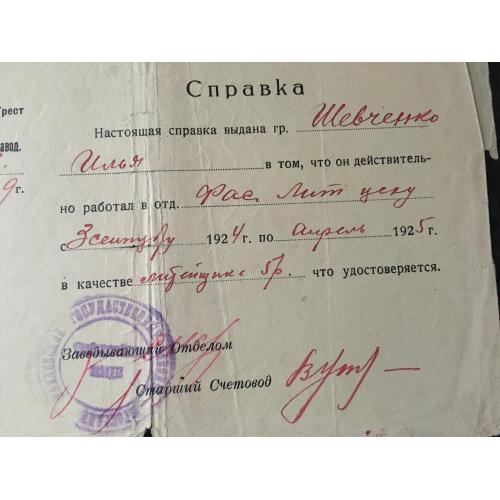 Справка
Трест
Настоящая справка выдана гр. Шевченко
авод.
Илья в том, что он действитель-
9 г.
но работал в отд. Фас. Лит цеху
с 3 сентября 1924 г. по апрель 1925 г.
в качестве литейщика 5 р. что удостоверяется.
Заведывающий Отделом
Старший Счетовод